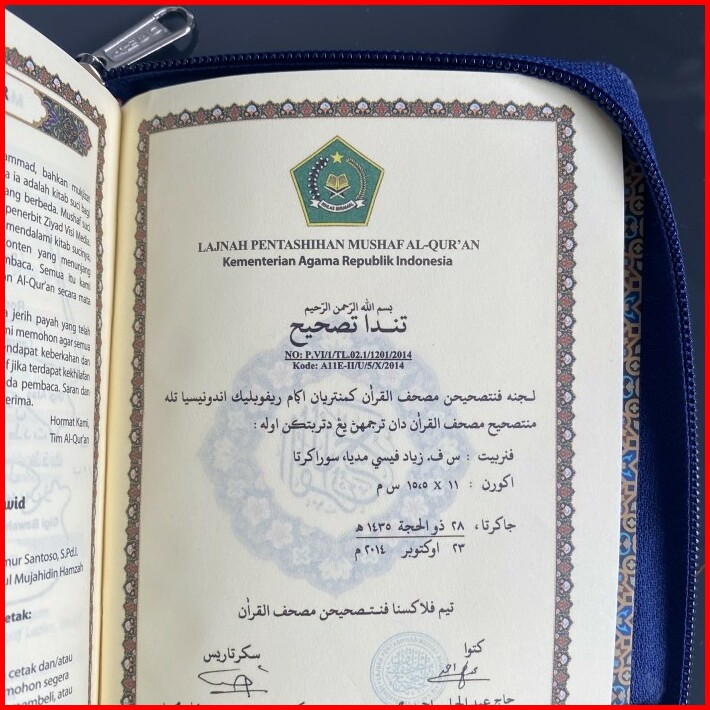 ammad, bahkan mukjizat
a ia adalah kitab suci bagi
ang berbeda. Mushaf suci
penerbit Ziyad Visi Media.
mendalami kitab sucinya,
onten yang menunjang
mbaca. Semua itu kami
n Al-Qur'an secara mata
a jerih payah yang telah
mi memohon agar semua
ndapat keberkahan dan
f jika terdapat kekhilafan
da pembaca. Saran dan
erima.
Hormat Kami,
Tim Al-Qur'an
wid
mur Santoso, S.Pd.I.
ul Mujahidin Hamzah
etak:
cetak dan/atau
mohon segera
mbeli, atau
IKHLAS BERAMAL
LAJNAH PENTASHIHAN MUSHAF AL-QUR'AN
Kementerian Agama Republik Indonesia
بسم الله الرّحمن الرّحيم
تندا تصحيح
NO: P.VI/1/TL.02.1/1201/2014
Kode: A11E-II/U/5/X/2014
لجنه فنتصحيحن مصحف القرأن كمنتريان اݢام ريفوبليك اندونيسيا تله
منتصحيح مصحف القرأن دان ترجمهن يڠ دتربتكن اوله :
فنربيت : س ف. زياد فيسي مديا، سوراكرتا
اكورن : ١١ X ١٥،٥ س م
جاكرتا، ٢٨ ذو الحجة ١٤٣٥ ھ
٢٣ اوكتوبر ٢٠١٤ م
تيم فلاكسنا فنتصحيحن مصحف القرأن
كتوا
سكرتاريس
حاج عبد